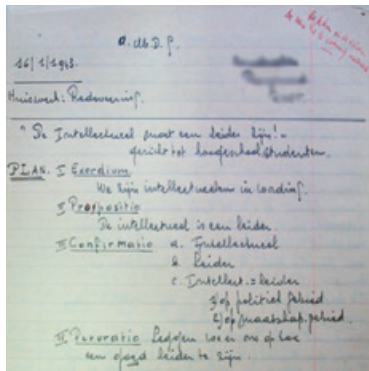 A.M.D.G.
16/1/1943.
Huiswerk: Redevoering.
"De Intellectueel moet een leider zijn!"
gericht tot hoogeschoolstudenten.
PLAN. I Exordium.
We zijn intellectueelen in wording.
II Propositio
De intellectueel is een leider.
III Confirmatio a. Intellectueel
b. Leider
c. Intellect. = leider
1/ op politiek gebied
2/ op maatschap. gebied.
IV. Peroratio Leggen we er ons op toe
een goed leider te zijn.